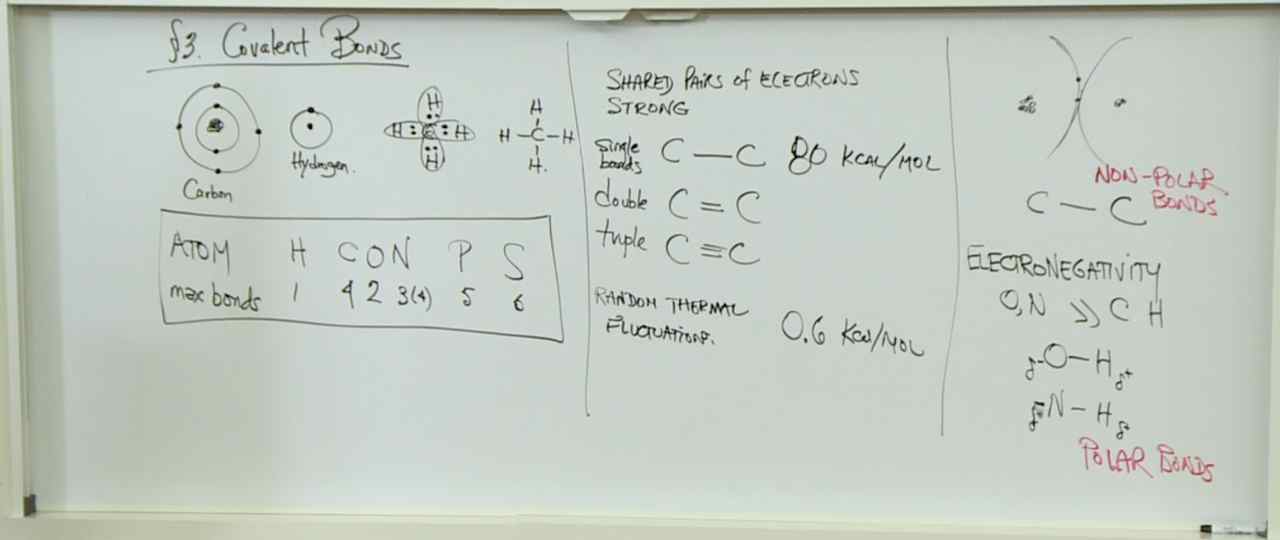 §3. Covalent Bonds
Carbon
Hydrogen.
H
H : C : H
H
H
H - C - H
H.
ATOM H C O N P S
max bonds 1 4 2 3(4) 5 6
SHARED PAIRS of ELECTRONS
STRONG
single bonds C — C 80 KCAL/MOL
double C = C
triple C ≡ C
RANDOM THERMAL
FLUCTUATIONS. 0.6 Kcal/MOL
NON-POLAR
BONDS
C — C
ELECTRONEGATIVITY
O,N >> C H
δ- O — H δ+
δ- N — H δ+
POLAR BONDS